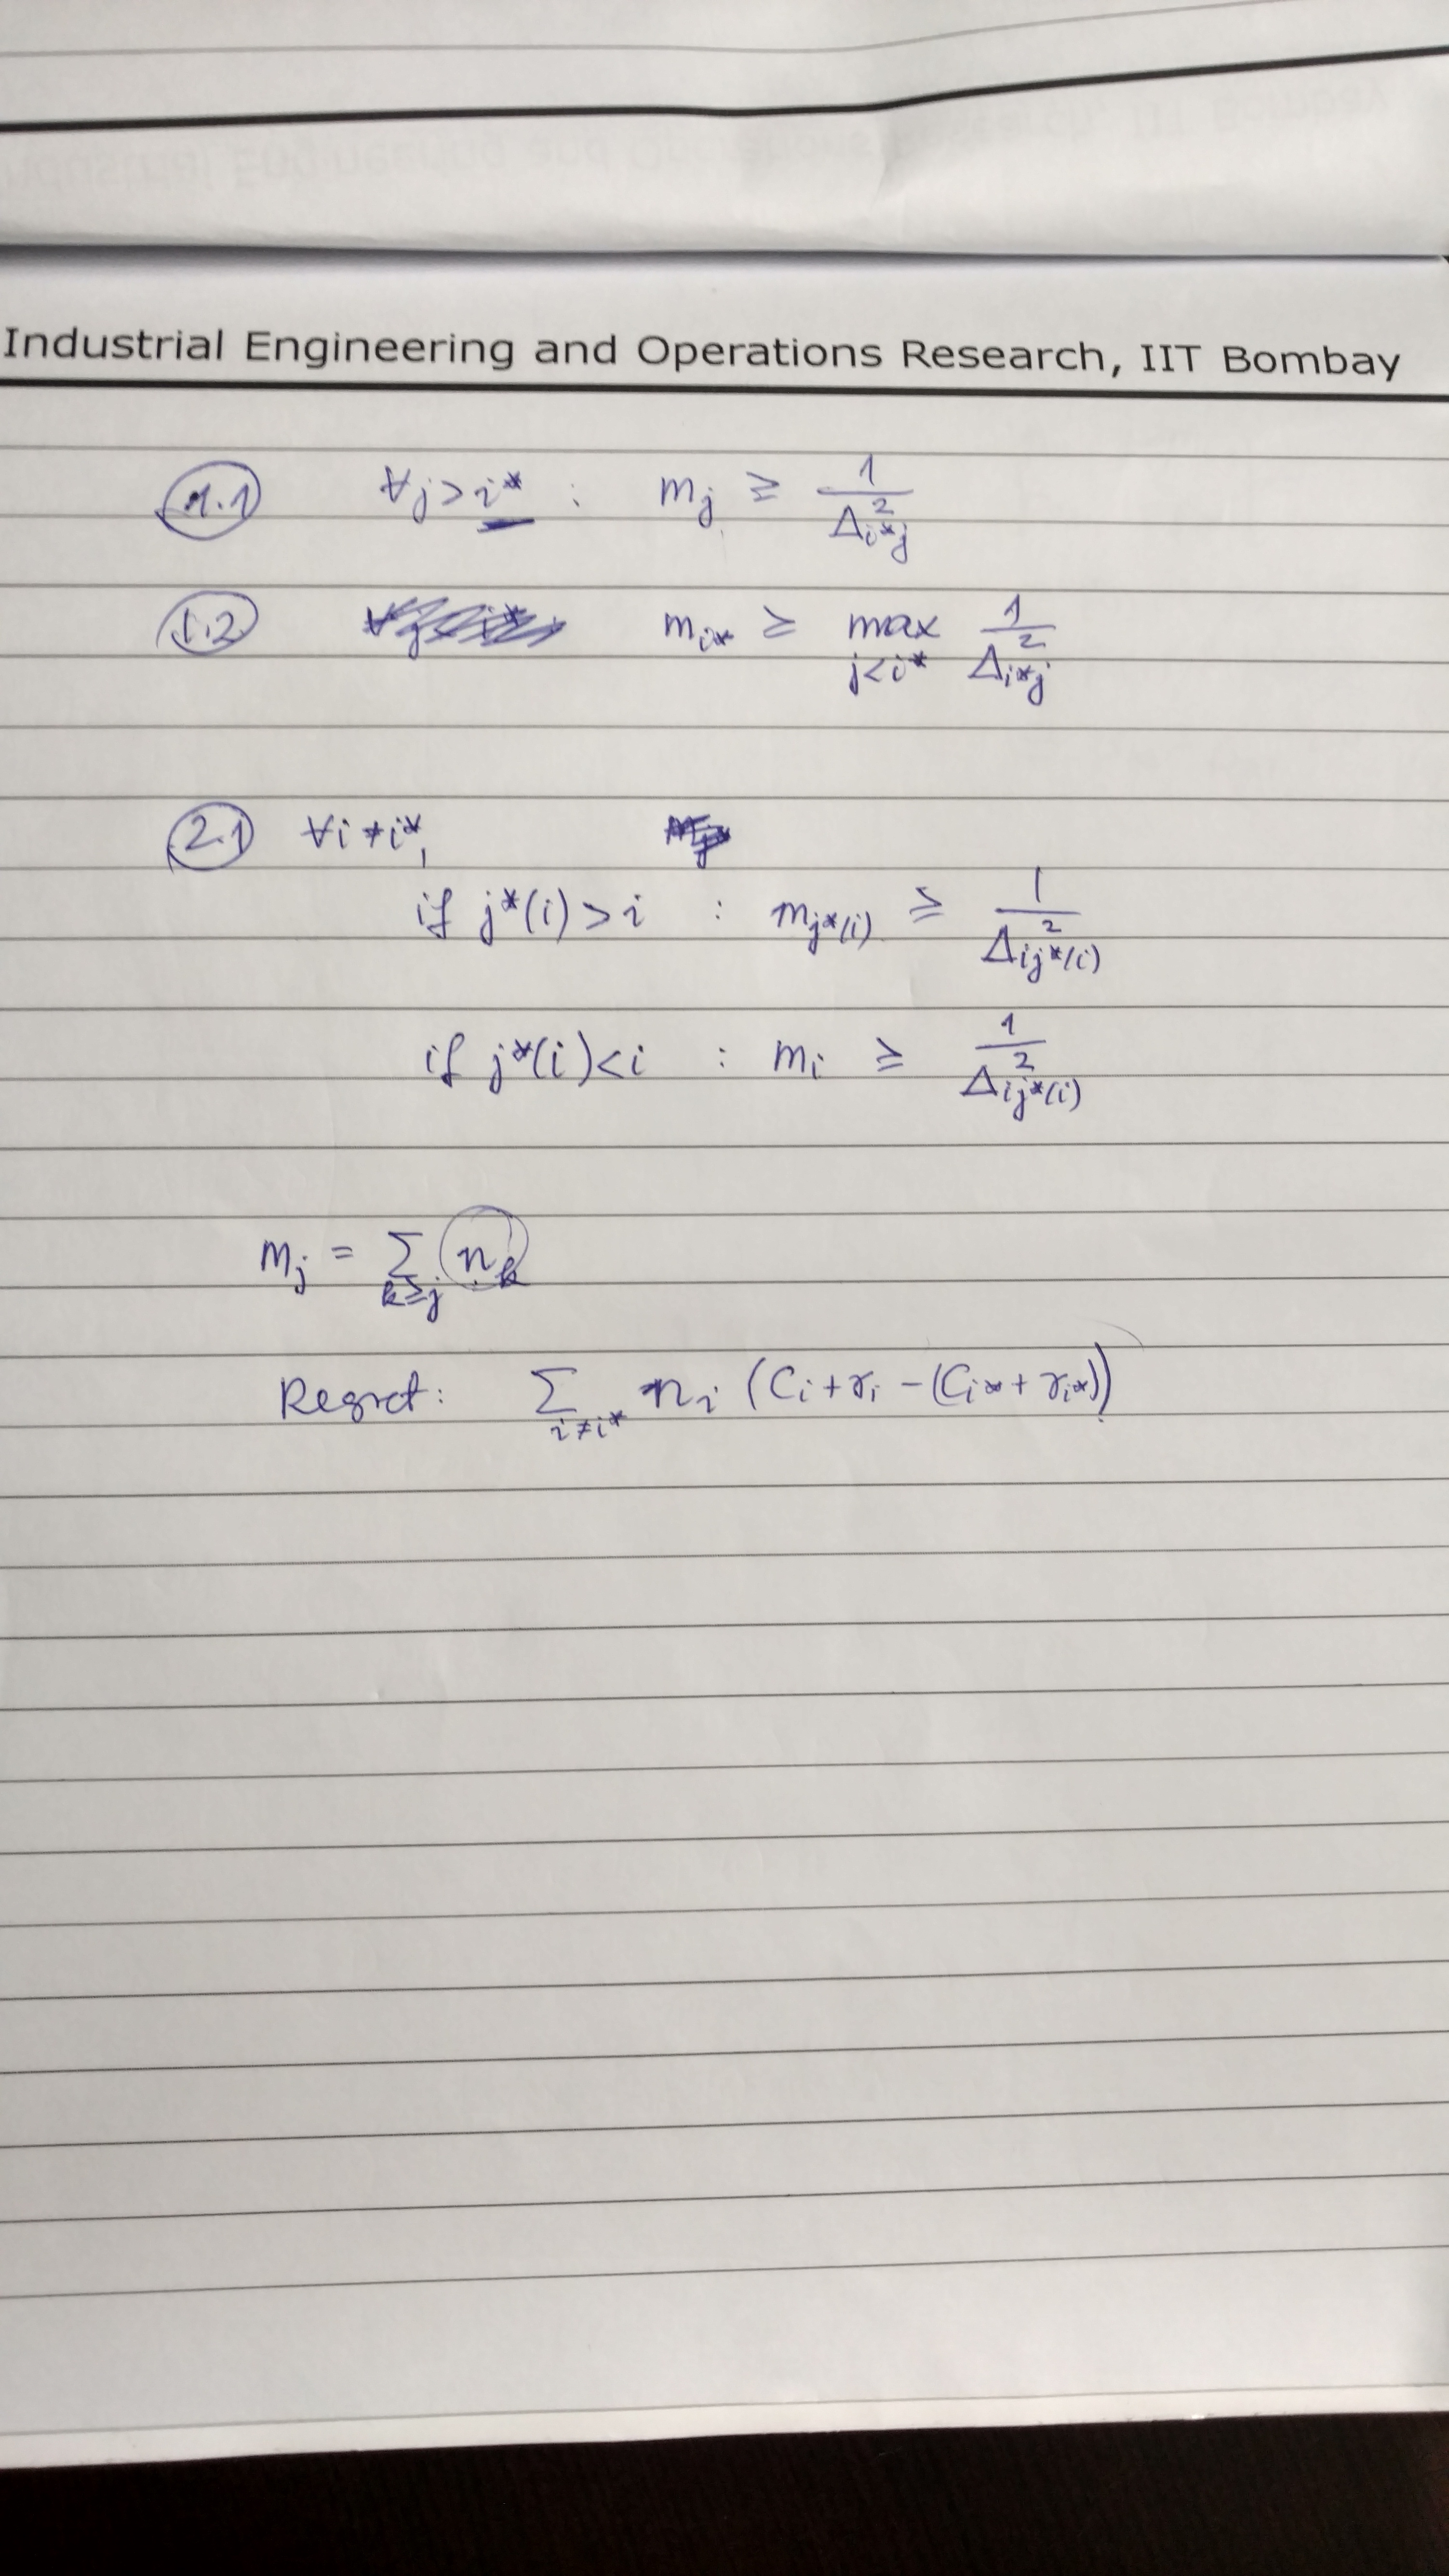 Industrial Engineering and Operations Research, IIT Bombay
1.1 ∀j>i* : m_j ≥ 1/Δ²_{i*j}
1.2 m_{i*} ≥ max_{j<i*} 1/Δ²_{i*j}
2.1 ∀i≠i*,
if j*(i)>i : m_{j*(i)} ≥ 1/Δ²_{ij*(i)}
if j*(i)<i : m_i ≥ 1/Δ²_{ij*(i)}
m_j = Σ_{k≥j} n_k
Regret: Σ_{i≠i*} n_i (C_i+γ_i −(C_{i*}+γ_{i*}))